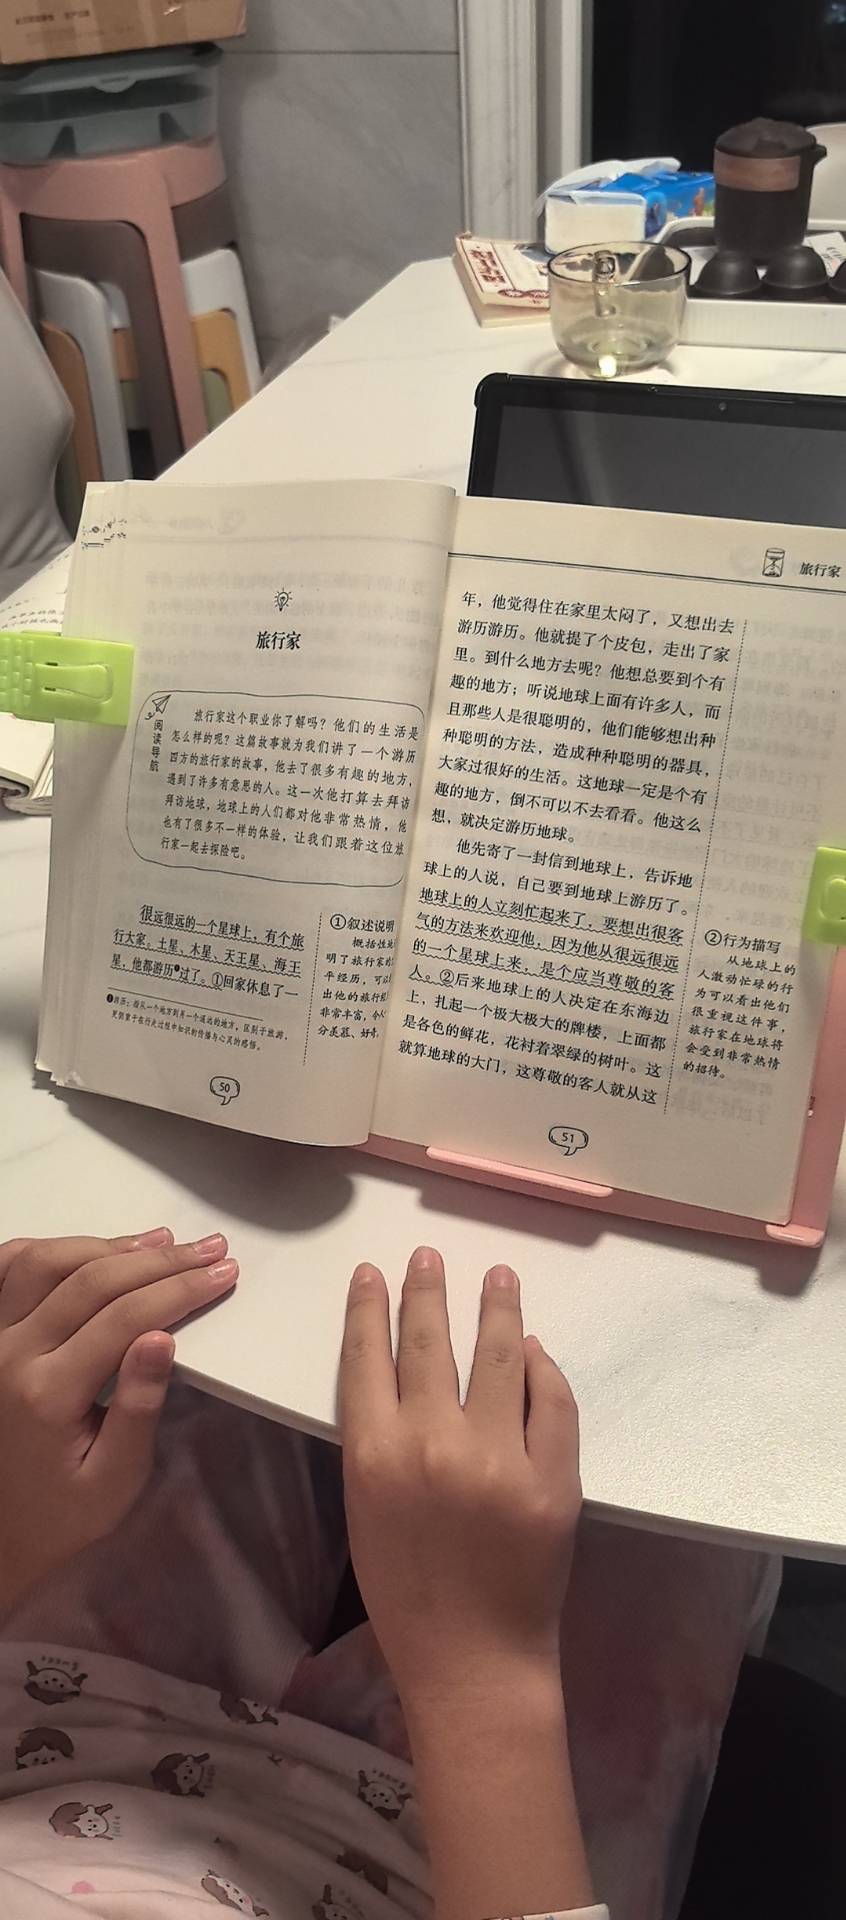 旅行家
旅行家这个职业你了解吗？他们的生活是
怎么样的呢？这篇故事就为我们讲了一个游历
四方的旅行家的故事，他去了很多有趣的地方，
遇到了许多有意思的人。这一次他打算去拜访
拜访地球，地球上的人们都对他非常热情，他
也有了很多不一样的体验，让我们跟着这位旅
行家一起去探险吧。
阅读导航
很远很远的一个星球上，有个旅
行大家。土星、木星、天王星、海王
星，他都游历❶过了。①回家休息了一
①叙述说明
概括性地
明了旅行家的
平经历，可以
出他的旅行
非常丰富，令人
分羡慕、好奇。
❶游历：指从一个地方到另一个遥远的地方，区别于旅游，
更侧重于在行走过程中知识的传播与心灵的感悟。
50
旅行家
年，他觉得住在家里太闷了，又想出去
游历游历。他就提了个皮包，走出了家
里。到什么地方去呢？他想总要到个有
趣的地方；听说地球上面有许多人，而
且那些人是很聪明的，他们能够想出种
种聪明的方法，造成种种聪明的器具，
大家过很好的生活。这地球一定是个有
趣的地方，倒不可以不去看看。他这么
想，就决定游历地球。
他先寄了一封信到地球上，告诉地
球上的人说，自己要到地球上游历了。
地球上的人立刻忙起来了，要想出很客
气的方法来欢迎他，因为他从很远很远
的一个星球上来，是个应当尊敬的客
人。②后来地球上的人决定在东海边
上，扎起一个极大极大的牌楼，上面都
是各色的鲜花，花衬着翠绿的树叶。这
就算地球的大门，这尊敬的客人就从这
②行为描写
从地球上的
人激动忙碌的行
为可以看出他们
很重视这件事，
旅行家在地球将
会受到非常热情
的招待。
51